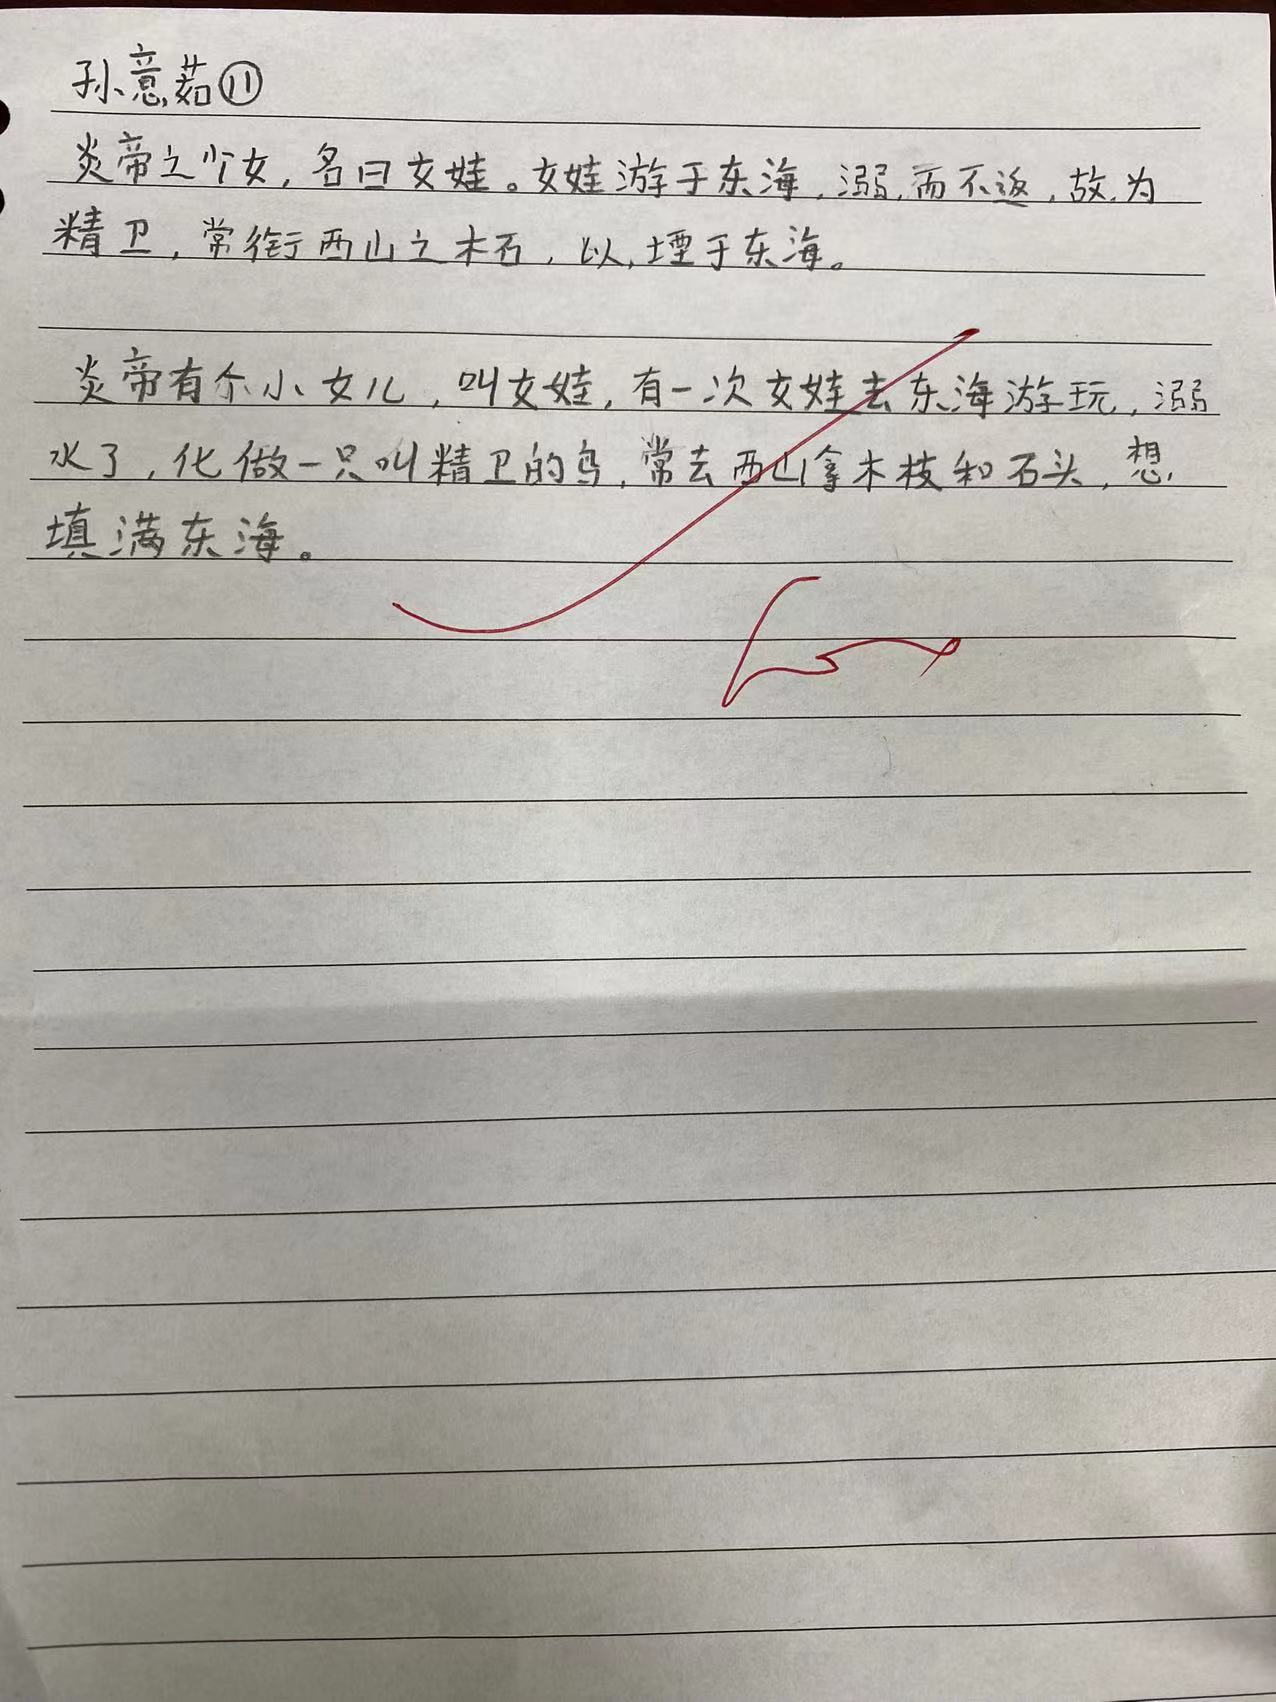 孙意茹⑪
炎帝之少女,名曰女娃。女娃游于东海,溺而不返,故为
精卫,常衔西山之木石,以堙于东海。
炎帝有个小女儿,叫女娃,有一次女娃去东海游玩,溺
水了,化做一只叫精卫的鸟,常去西山拿木枝和石头,想
填满东海。